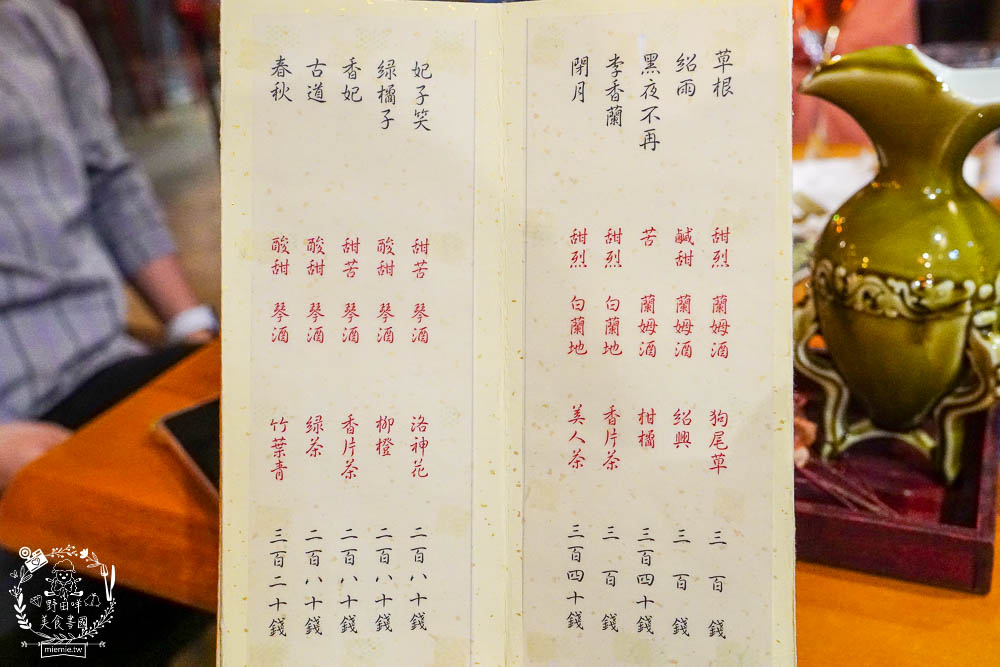 草根 甜烈 蘭姆酒 狗尾草 三百錢
紹雨 鹹甜 蘭姆酒 紹興 三百錢
黑夜不再 苦 蘭姆酒 柑橘 三百四十錢
李香蘭 甜烈 白蘭地 香片茶 三百錢
閉月 甜烈 白蘭地 美人茶 三百四十錢
妃子笑 甜苦 琴酒 洛神花 二百八十錢
绿橘子 酸甜 琴酒 柳橙 二百八十錢
香妃 甜苦 琴酒 香片茶 二百八十錢
古道 酸甜 琴酒 绿茶 二百八十錢
春秋 酸甜 琴酒 竹葉青 三百二十錢
野田咩
美食書國
miemie.tw